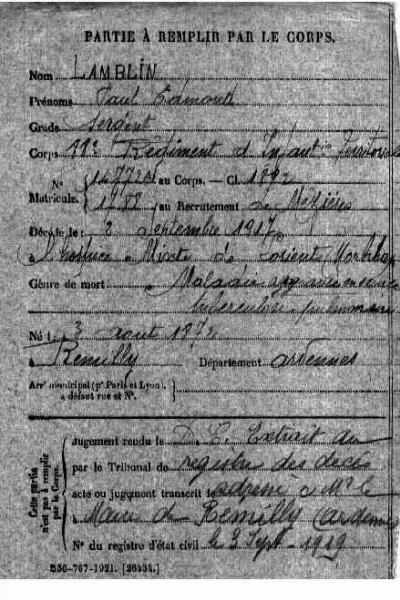 PARTIE À REMPLIR PAR LE CORPS.
Nom LAMBLIN
Prénoms Paul Edmond
Grade Sergent
Corps Régiment d'Infant ie Territoriale
N° 14772 au Corps. — Cl. 1892
Matricule. 1488 au Recrutement de Mézières
Décédé le : 2 Septembre 1917
à l'hospice Mixte de Lorient Morbihan
Genre de mort Maladie aggravée en service
tuberculose pulmonaire
Né le 3 août 1872
à Remilly Département ardennes
Arr municipal (pr Paris et Lyon),
à défaut rue et N°.
Cette partie n'est pas à remplir par le Corps.
Jugement rendu le D.C. Extrait du
par le Tribunal de registre des décès
acte ou jugement transcrit le adressé à Mr le
à Maire de Remilly (ardennes
N° du registre d'état civil le 3 Sept. 1919
536-767-1921. [26434.]